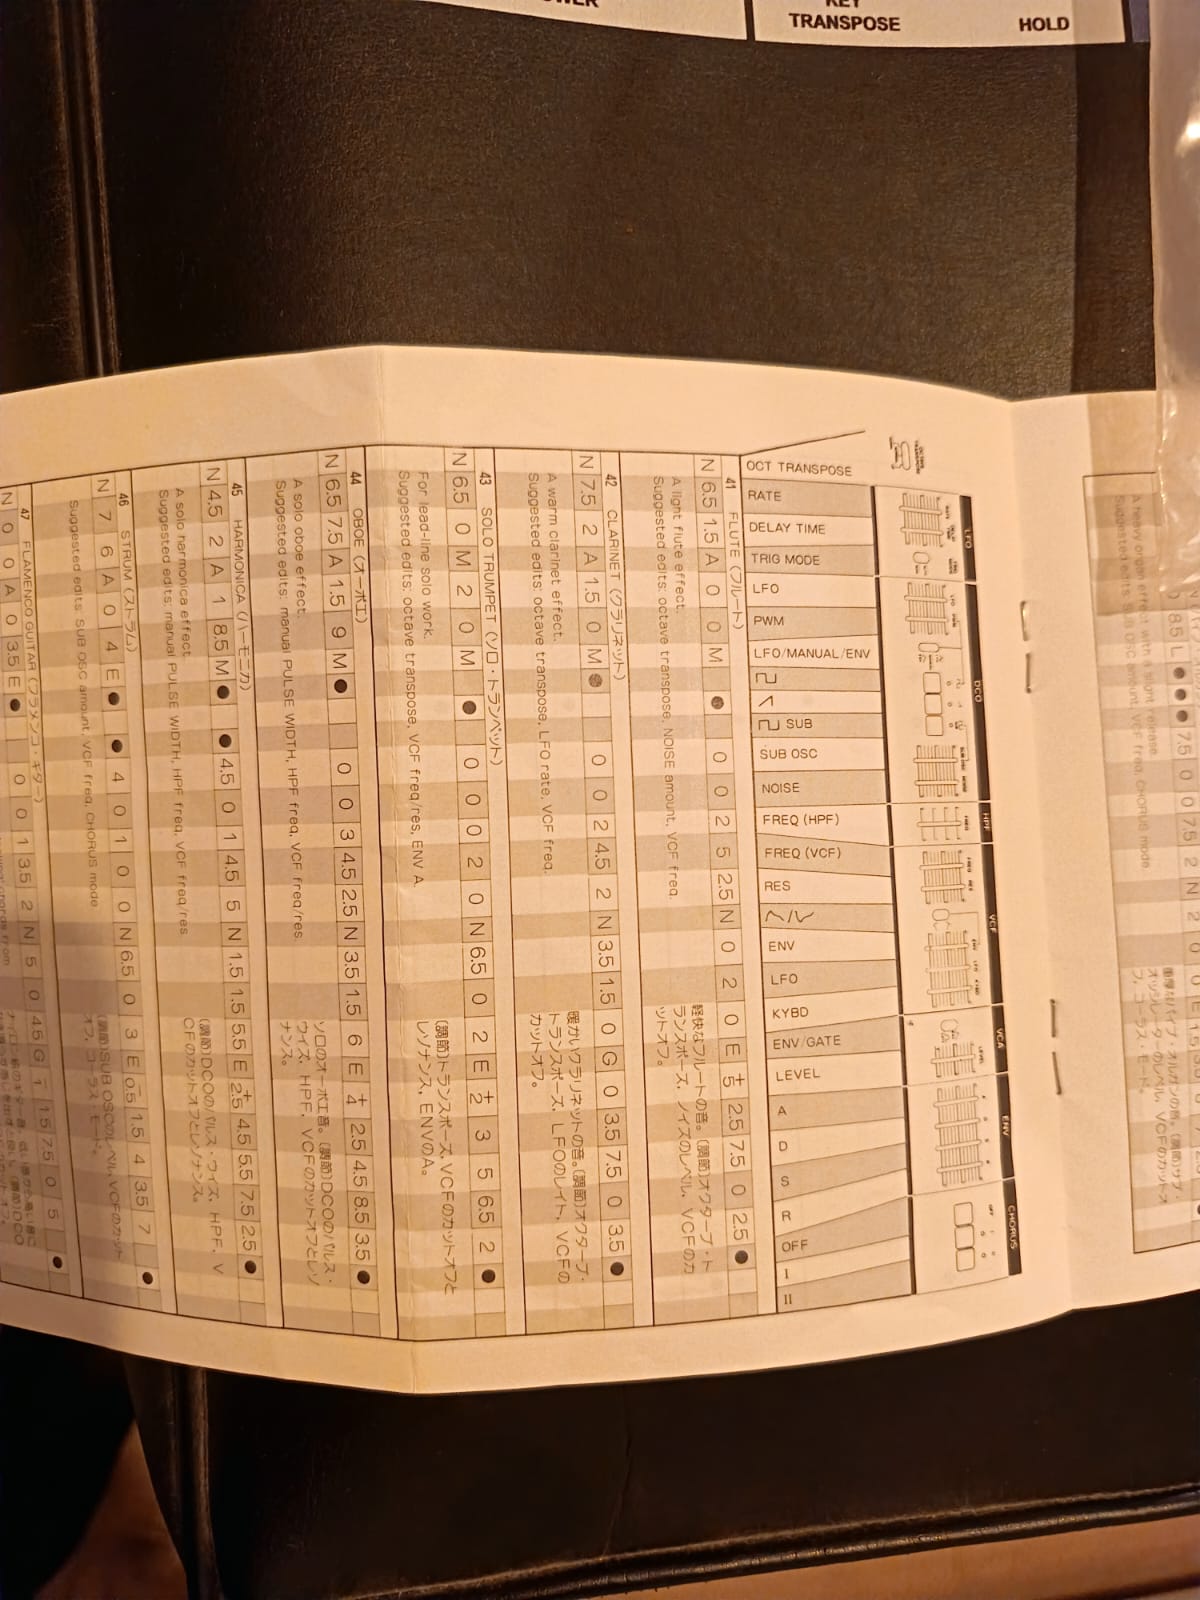 KEY
TRANSPOSE
HOLD
LFO
DCO
HPF
VCF
VCA
ENV
CHORUS
OCT TRANSPOSE
RATE
DELAY TIME
TRIG MODE
LFO
PWM
LFO/MANUAL/ENV
SUB
SUB OSC
NOISE
FREQ (HPF)
FREQ (VCF)
RES
ENV
LFO
KYBD
ENV/GATE
LEVEL
A
D
S
R
OFF
I
II
41 FLUTE (フルート)
N 6.5 1.5 A 0 0 M ● 0 0 2 5 2.5 N 0 2 0 E +5 2.5 7.5 0 2.5 ●
A light flute effect.
Suggested edits: octave transpose, NOISE amount, VCF freq.
軽快なフルートの音。(調節)オクターブ・ト
ランスポーズ、ノイズのレベル、VCFのカ
ットオフ。
42 CLARINET (クラリネット)
N 7.5 2 A 1.5 0 M ● 0 0 2 4.5 2 N 3.5 1.5 0 G 0 3.5 7.5 0 3.5 ●
A warm clarinet effect.
Suggested edits: octave transpose, LFO rate, VCF freq.
暖かいクラリネットの音。(調節)オクターブ・
トランスポーズ、LFOのレイト、VCFの
カットオフ。
43 SOLO TRUMPET (ソロ・トランペット)
N 6.5 0 M 2 0 M ● 0 0 0 2 0 N 6.5 0 2 E +2 3 5 6.5 2 ●
For lead-line solo work.
Suggested edits: octave transpose, VCF freq/res, ENV A.
(調節)トランスポーズ、VCFのカットオフと
レゾナンス、ENVのA。
44 OBOE (オーボエ)
N 6.5 7.5 A 1.5 9 M ● 0 0 3 4.5 2.5 N 3.5 1.5 6 E +4 2.5 4.5 8.5 3.5 ●
A solo oboe effect.
Suggested edits: manual PULSE WIDTH, HPF freq, VCF freq/res.
ソロのオーボエ音。(調節)DCOのパルス・
ウイズ、HPF、VCFのカットオフとレゾ
ナンス。
45 HARMONICA (ハーモニカ)
N 4.5 2 A 1 8.5 M ● ● 4.5 0 1 4.5 5 N 1.5 1.5 5.5 E +2.5 4.5 5.5 7.5 2.5 ●
A solo harmonica effect.
Suggested edits: manual PULSE WIDTH, HPF freq, VCF freq/res
(調節)DCOのパルス・ウイズ、HPF、V
CFのカットオフとレゾナンス。
46 STRUM (ストラム)
N 7 6 A 0 4 E ● ● 4 0 1 0 0 N 6.5 0 3 E −0.5 1.5 4 3.5 7 ●
Suggested edits: SUB OSC amount, VCF freq, CHORUS mode
(調節)SUB OSCのレベル、VCFのカット
オフ、コーラス・モード。
47 FLAMENCO GUITAR (フラメンコ・ギター)
N 0 0 A 0 3.5 E ● 0 0 1 3.5 2 N 5 0 4.5 G −1 1.5 7.5 0 5 ●
A heavy organ effect with a slight release.
Suggested edits: SUB OSC amount, VCF freq, CHORUS mode